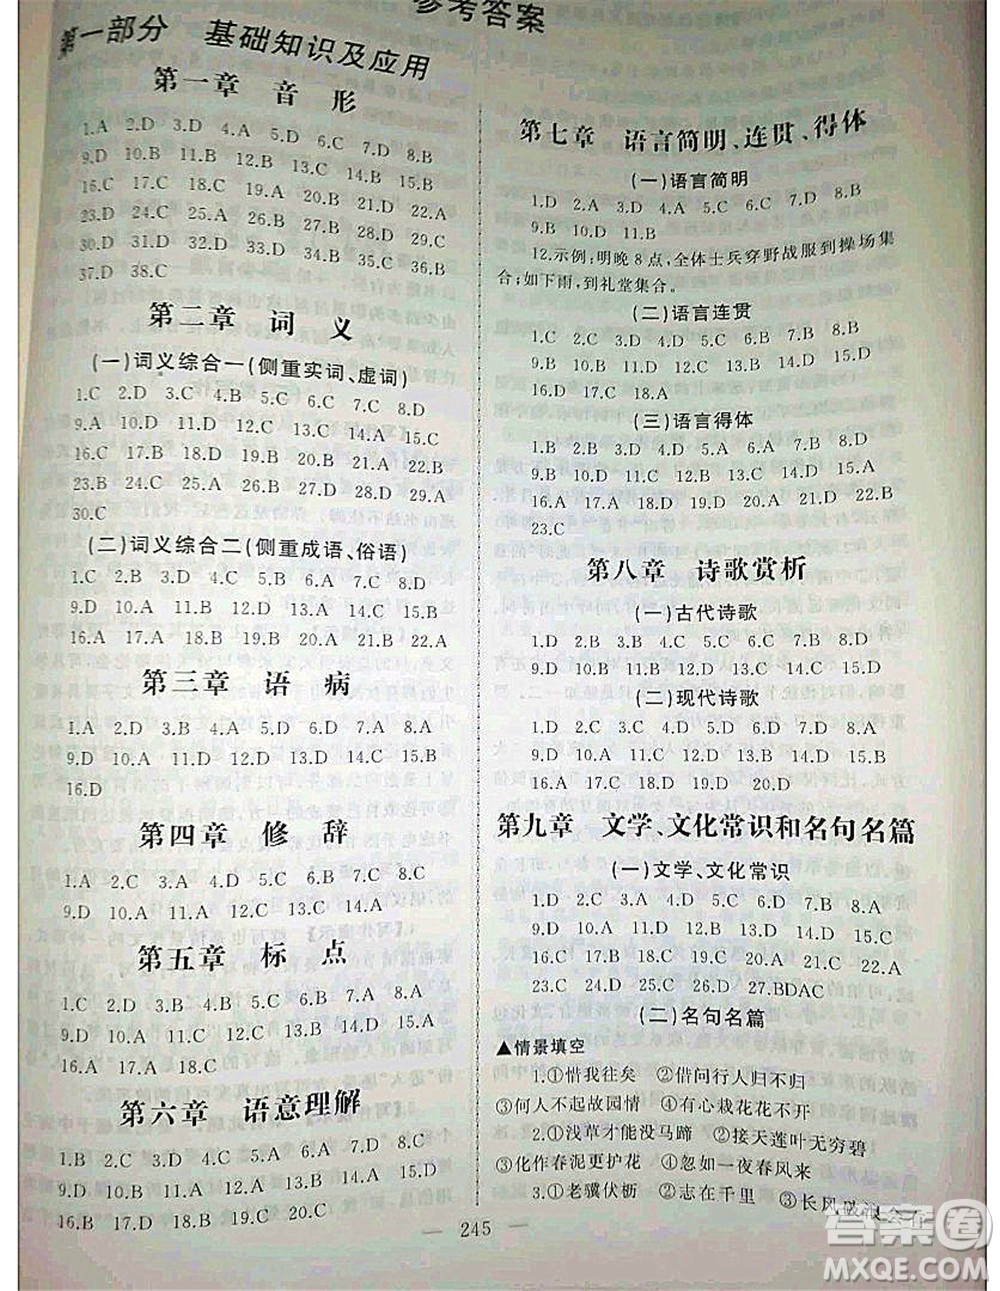 参考答案
第一部分 基础知识及应用
第一章 音 形
1.A 2.D 3.D 4.A 5.D 6.C 7.D 8.B
9.D 10.B 11.B 12.D 13.C 14.C 15.B
16.C 17.D 18.C 19.A 20.B 21.D 22.A
23.D 24.C 25.A 26.B 27.B 28.D 29.B
30.D 31.B 32.D 33.D 34.B 35.A 36.B
37.D 38.C
第二章 词 义
(一)词义综合一(侧重实词、虚词)
1.C 2.D 3.C 4.B 5.C 6.C 7.C 8.D
9.D 10.C 11.D 12.B 13.C 14.A 15.C
16.C 17.D 18.A 19.D 20.B 21.A 22.B
23.B 24.C 25.A 26.B 27.B 28.D 29.A
30.C
(二)词义综合二(侧重成语、俗语)
1.C 2.B 3.D 4.D 5.A 6.C 7.B 8.C
9.D 10.A 11.D 12.B 13.D 14.C 15.C
16.A 17.A 18.D 19.D 20.A 21.B 22.A
第三章 语 病
1.A 2.D 3.A 4.D 5.D 6.D 7.B 8.A
9.D 10.A 11.D 12.B 13.D 14.D 15.B
16.D
第四章 修 辞
1.A 2.C 3.A 4.C 5.D 6.D 7.D 8.C
9.D 10.A 11.A 12.C 13.D 14.A
第五章 标 点
1.C 2.D 3.D 4.B 5.C 6.B 7.A 8.A
9.D 10.A 11.C 12.C 13.B 14.D 15.A
16.A 17.A 18.C
第六章 语意理解
1.B 2.C 3.A 4.C 5.D 6.B 7.D 8.C
9.D 10.C 11.D 12.D 13.A 14.C 15.D
16.B 17.D 18.B 19.B 20.C
第七章 语言简明、连贯、得体
(一)语言简明
1.D 2.A 3.D 4.A 5.C 6.D 7.A 8.B
9.B 10.D 11.B
12.示例:明晚8点,全体士兵穿野战服到操场集
合;如下雨,到礼堂集合。
(二)语言连贯
1.B 2.C 3.C 4.D 5.C 6.C 7.D 8.B
9.B 10.D 11.B 12.A 13.C 14.A 15.B
16.D 17.C 18.A
(三)语言得体
1.B 2.B 3.D 4.D 5.A 6.D 7.A 8.A
9.D 10.D 11.C 12.D 13.C 14.D 15.D
16.A 17.A 18.C 19.D 20.D 21.A 22.A
23.C
第八章 诗歌赏析
(一)古代诗歌
1.D 2.B 3.B 4.A 5.C 6.C 7.D 8.C
9.D 10.B 11.A 12.C 13.A 14.B 15.B
(二)现代诗歌
1.D 2.C 3.C 4.D 5.B 6.B 7.D 8.A
9.D 10.A 11.A 12.B 13.D 14.D 15.B
16.C 17.D 18.C 19.D 20.D
第九章 文学、文化常识和名句名篇
(一)文学、文化常识
1.D 2.D 3.C 4.A 5.C 6.D 7.B 8.A
9.C 10.C 11.B 12.B 13.A 14.D 15.D
16.A 17.C 18.C 19.D 20.D 21.C 22.A
23.C 24.D 25.C 26.D 27.BDAC
(二)名句名篇
▲情景填空
1.①昔我往矣 ②借问行人归不归
③何人不起故园情 ④有心栽花花不开
2.①浅草才能没马蹄 ②接天莲叶无穷碧
③化作春泥更护花 ④忽如一夜春风来
3.①老骥伏枥 ②志在千里 ③长风破浪会有
— 245 —
答案圈
MXQE.COM